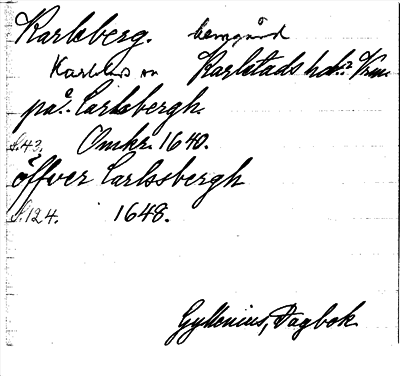 Karlsberg. herrgård
Karlstads hd: Vrm.
på. Carlsbergh.
S.43. Omkr. 1640.
öffver Carlssbergh
S.124. 1648.
Gyllenius, Dagbok